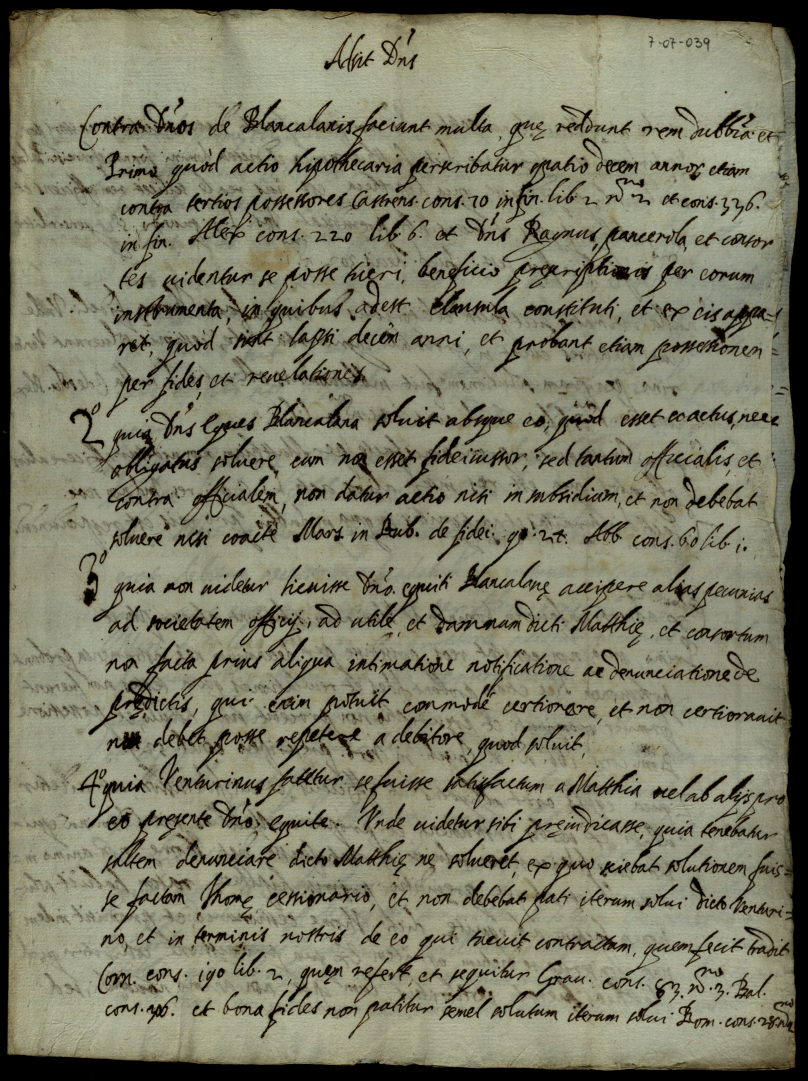 7-07-039
Adsit Dn̄s
Contra Dn̄os de Blancalanis faciunt multa, quę reddunt rem dubbia et
Primo quòd actio hipothecaria perscribatur spatio decem annor etiam
contra tertios possessores Castrens. cons. 70 in fin. lib. 2 nro 2 et cons. 336.
in fin. Alex cons. 220 lib. 6. et Dn̄s Raynus, pancerola, et consor
tes uidentur se posse tueri, beneficio pręscriptionis per eorum
instrumenta, in quibus adest clausula constituti, et ex eis appa=
ret, quòd sint lapsi decem anni, et probant etiam possessionem
per fides, et reuelationes.
2° quia Dn̄s Eques Blancalana soluit absque eo, quòd esset coactus, nec
obligatus soluere, cum non esset fideiussor, sed tantum officialis, et
contra officialem, non datur actio nisi in subsidium, et non debebat
soluere nisi coactè Mars in Rub. de fidei. Abb cons. 60 lib. i.
3° quia non uidetur licuisse Dn̄o. equiti Blancalanę accipere alias pecunias
ad societatem officij, ad utile, et damnum dicti Matthię, et consortum
non facta prius aliqua intimatione notificatione ac denunciatione de
prędictis, qui enim potuit commodè certiorare, et non certiorauit
non debet posse repetere à debitore, quod soluit,
4° quia Venturinus fatetur se fuisse satisfactum a Matthia uel ab alijs pro
eo presente Dn̄o, equite. Vnde uidetur sibi pręiudicasse, quia tenebatur
saltem denunciare dicto Matthię ne solueret, ex quo sciebat solutionem fuis=
se factam Thomę cessionario, et non debebat pati iterum solui dicto Venturi=
no, et in terminis nostris de eo qui tacuit contractum, quem fecit tradit
Corn. cons. 190 lib. 2, quem refert, et sequitur Grau. cons. 83. nro. 3. Bal.
cons. et bona fides non patitur semel solutum iterum solui Rom. cons. 28